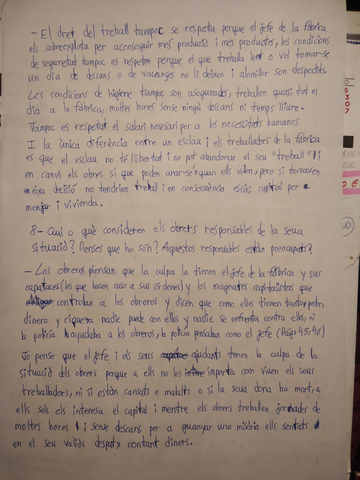 - El dret del treball tampoc se respeta perque el jefe de la fàbrica
els sobreexplota per aconseguir mes producció i mes productes, les condicions
de seguretat tampoc es respeten perque el que treballa lent o vol tomar-se
un dia de descans o de vacances no li deixen i abonillar son despedits.
Les condicions de higiene tampoc son asegurades, treballen quasi tot el
dia a la fàbrica, moltes hores sense ningún descans ni temps lliure.
Tampoc es respetat el salari necesari per a les necessitats humanes
I la única diferència entre un esclau i els treballadors de la fàbrica
es que el esclau no té llibertat i no pot abandonar el seu "treball" i
en canvi els obrers si que poden anar-se quan ells volen, pero si tomaven
eixa decisió no tendrien treball i en consecuència escàs capital per a
menjar i vivienda.
8- Qui o què consideren els obrers responsables de la seua
situació? Penses que ho són? Aquestos responsables están preocupats?
- Los obreros piensan que la culpa la tienen el jefe de la fàbrica y sus
capataces (los que hacen caso a sus órdenes) y los magnates capitalistas que
controlan a los obreros y dicen que como ellos tienen poder,
dinero y riqueza nadie puede con ellos y nadie se enfrenta contra ellos, ni
la policía ayudaba a los obreros, la policía pensaban como el jefe (Págs 45,46)
Jo pense que el jefe i els seus ajudants tenen la culpa de la
situació dels obrers perque a ells no els importa com viuen els seus
treballadors, ni si están cansats o malalts o si la seua dona ha mort, a
ells sols els interesa el capital i mentre els obrers treballen jornades de
moltes hores i sense descans per a guanyar una misèria ells sentats
en el seu valiós despatx contant diners.